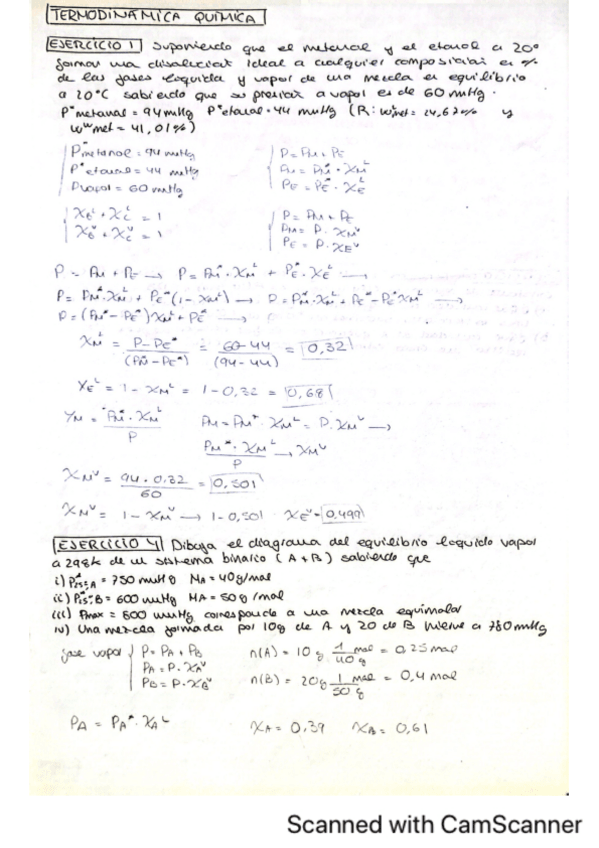 TERMODINÁMICA QUÍMICA
EJERCICIO 1 Suponiendo que el metanol y el etanol a 20°
forman una disolución ideal a cualquier composición en %
de las fases líquida y vapor de una mezcla en equilibrio
a 20°C sabiendo que su presión a vapor es de 60 mmHg.
P*metanol = 94 mmHg P*etanol = 44 mmHg (R: wᴸmet = 24,62% y
wᵛmet = 41,01%)
P*metanol = 94 mmHg
P*etanol = 44 mmHg
Pvapor = 60 mmHg
P = PM + PE
PM = PM* · XMᴸ
PE = PE* · XEᴸ
P = PM + PE
PM = P · XMᵛ
PE = P · XEᵛ
P = PM + PE → P = PM* · XMᴸ + PE* · XEᴸ →
P = PM* · XMᴸ + PE* (1 - XMᴸ) → P = PM* · XMᴸ + PE* - PE* XMᴸ →
P = (PM* - PE*) XMᴸ + PE* →
XMᴸ = P - PE* / (PM* - PE*) = 60 - 44 / (94 - 44) = 0,32
XEᴸ = 1 - XMᴸ = 1 - 0,32 = 0,68
YM = PM* · XMᴸ / P PM = PM* · XMᴸ = P · XMᵛ →
PM* · XMᴸ / P → XMᵛ
XMᵛ = 94 · 0,32 / 60 = 0,501
XMᵛ = 1 - XMᵛ → 1 - 0,501 XEᵛ = 0,499
EJERCICIO 4 Dibuja el diagrama del equilibrio líquido vapor
a 298k de un sistema binario (A + B) sabiendo que
i) A = 750 mmHg MA = 40 g/mol
ii) B = 600 mmHg MA = 50 g/mol
iii) Pmax = 800 mmHg corresponde a una mezcla equimolar
iv) Una mezcla formada por 10g de A y 20 de B hierve a 780 mmHg
fase vapor
P = PA + PB
PA = P · XAᵛ
PB = P · XBᵛ
n(A) = 10 g 1 mol / 40 g = 0,25 mol
n(B) = 20g 1 mol / 50 g = 0,4 mol
PA = PA* · XAᴸ XA = 0,39 XB = 0,61
Scanned with CamScanner